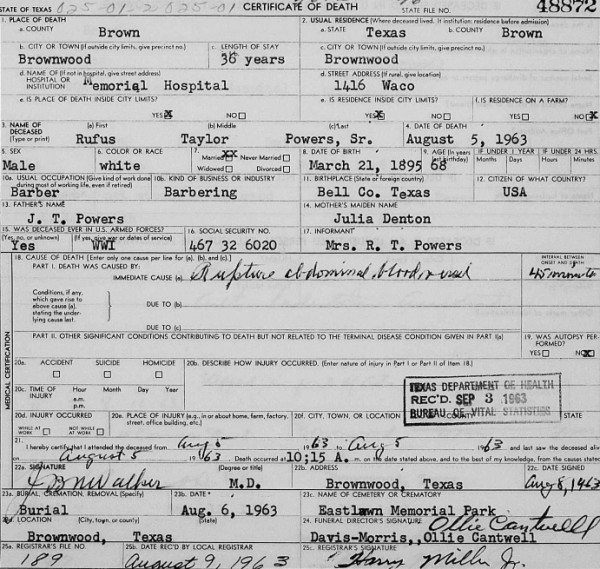 CERTIFICATE OF DEATH
STATE OF TEXAS STATE FILE NO. 48872
1. PLACE OF DEATH 2. USUAL RESIDENCE (Where deceased lived. If institution: residence before admission)
a. COUNTY Brown a. STATE Texas b. COUNTY Brown
b. CITY OR TOWN (If outside city limits, give precinct no.) c. LENGTH OF STAY c. CITY OR TOWN (If outside city limits, give precinct no.)
Brownwood 36 years Brownwood
d. NAME OF (If not in hospital, give street address) d. STREET ADDRESS (If rural, give location)
HOSPITAL OR INSTITUTION Memorial Hospital 1416 Waco
e. IS PLACE OF DEATH INSIDE CITY LIMITS? e. IS RESIDENCE INSIDE CITY LIMITS? f. IS RESIDENCE ON A FARM?
YES NO YES NO YES NO
3. NAME OF DECEASED (Type or print) (a) First (b) Middle (c) Last 4. DATE OF DEATH
Rufus Taylor Powers, Sr. August 5, 1963
5. SEX 6. COLOR OR RACE 7. Married Never Married Widowed Divorced 8. DATE OF BIRTH 9. AGE (In years last birthday) IF UNDER 1 YEAR Months Days IF UNDER 24 HRS. Hours Minutes
Male white March 21, 1895 68
10a. USUAL OCCUPATION (Give kind of work done during most of working life, even if retired) 10b. KIND OF BUSINESS OR INDUSTRY 11. BIRTHPLACE (State or foreign country) 12. CITIZEN OF WHAT COUNTRY?
Barber Barbering Bell Co. Texas USA
13. FATHER'S NAME 14. MOTHER'S MAIDEN NAME
J. T. Powers Julia Denton
15. WAS DECEASED EVER IN U.S. ARMED FORCES? 16. SOCIAL SECURITY NO. 17. INFORMANT
(Yes, no, or unknown) (If yes, give war or dates of service)
Yes WWI 467 32 6020 Mrs. R. T. Powers
18. CAUSE OF DEATH [Enter only one cause per line for (a), (b), and (c).] INTERVAL BETWEEN ONSET AND DEATH
PART I. DEATH WAS CAUSED BY:
IMMEDIATE CAUSE (a) Rupture abdominal blood vessel 45 minutes
Conditions, if any, which gave rise to above cause (a), stating the underlying cause last.
DUE TO (b)
DUE TO (c)
PART II. OTHER SIGNIFICANT CONDITIONS CONTRIBUTING TO DEATH BUT NOT RELATED TO THE TERMINAL DISEASE CONDITION GIVEN IN PART I(a) 19. WAS AUTOPSY PERFORMED?
YES NO
MEDICAL CERTIFICATION
20a. ACCIDENT SUICIDE HOMICIDE 20b. DESCRIBE HOW INJURY OCCURRED. (Enter nature of injury in Part I or Part II of Item 18.)
20c. TIME OF INJURY Hour Month Day Year
a.m.
p.m.
TEXAS DEPARTMENT OF HEALTH
REC'D. SEP 3 1963
BUREAU OF VITAL STATISTICS
20d. INJURY OCCURRED 20e. PLACE OF INJURY (e.g., in or about home, farm, factory, street, office building, etc.) 20f. CITY, TOWN, OR LOCATION COUNTY STATE
WHILE AT WORK NOT WHILE AT WORK
21. I hereby certify that I attended the deceased from Aug 5 1963 to Aug 5 1963 and last saw the deceased alive
on August 5 1963. Death occurred at 10:15 A. m. on the date stated above, and to the best of my knowledge, from the causes stated
22a. SIGNATURE (Degree or title) 22b. ADDRESS 22c. DATE SIGNED
Walker M.D. Brownwood, Texas Aug 8, 1963
23a. BURIAL, CREMATION, REMOVAL (Specify) 23b. DATE 23c. NAME OF CEMETERY OR CREMATORY
Burial Aug. 6, 1963 Eastlawn Memorial Park
23d. LOCATION (City, town, or county) (State) 24. FUNERAL DIRECTOR'S SIGNATURE Ollie Cantwell
Brownwood, Texas Davis-Morris, Ollie Cantwell
25a. REGISTRAR'S FILE NO. 25b. DATE REC'D BY LOCAL REGISTRAR 25c. REGISTRAR'S SIGNATURE
189 August 9, 1963 Harry Miller Jr.